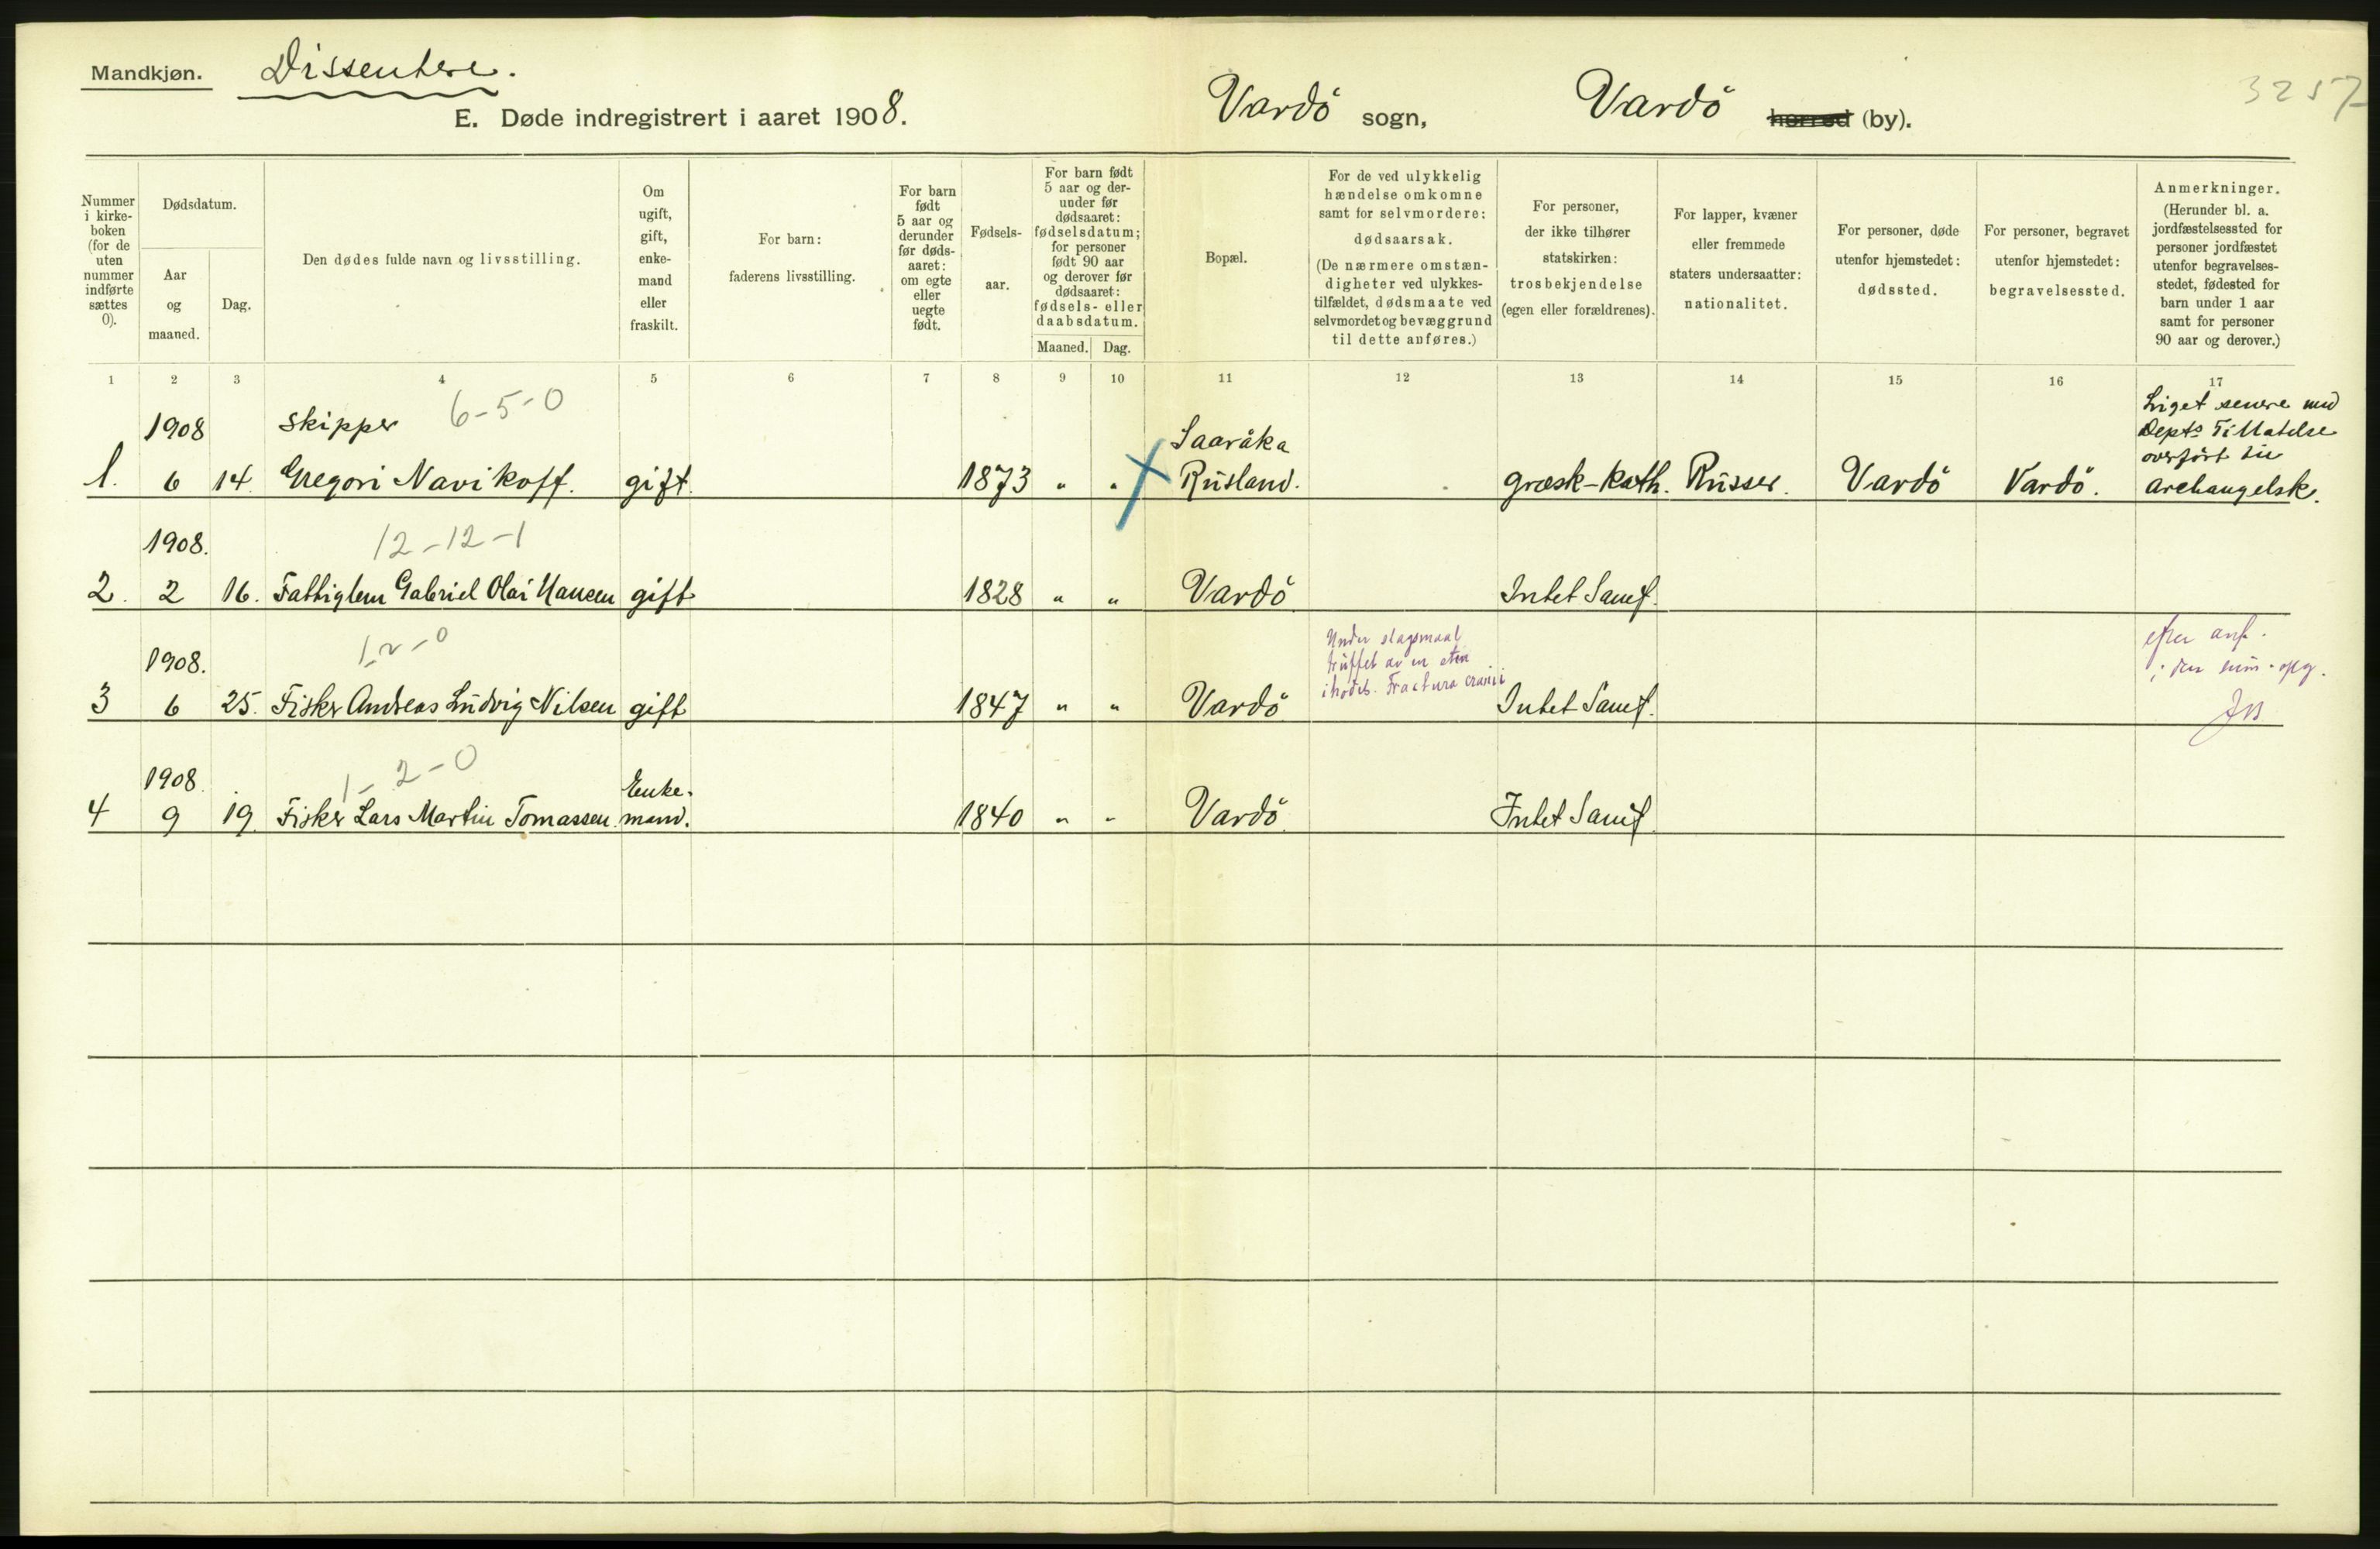 Mandkjøn. Dissentere.
E. Døde indregistrert i aaret 1908.
Vardö sogn, Vardö herred (by).
3257
Nummer i kirke-boken (for de uten nummer indførte sættes 0).
Dødsdatum.
Aar og maaned.
Dag.
Den dødes fulde navn og livsstilling.
Om ugift, gift, enke-mand eller fraskilt.
For barn: faderens livsstilling.
For barn født 5 aar og derunder før døds-aaret: om egte eller uegte født.
Fødsels-aar.
For barn født 5 aar og der-under før dødsaaret: fødselsdatum; for personer født 90 aar og derover før dødsaaret: fødsels- eller daabsdatum.
Maaned. Dag.
Bopæl.
For de ved ulykkelig hændelse omkomne samt for selvmordere: dødsaarsak.
(De nærmere omstæn-digheter ved ulykkes-tilfældet, dødsmaate ved selvmordet og bevæggrund til dette anføres.)
For personer, der ikke tilhører statskirken: trosbekjendelse (egen eller forældrenes).
For lapper, kvæner eller fremmede staters undersaatter: nationalitet.
For personer, døde utenfor hjemstedet: dødssted.
For personer, begravet utenfor hjemstedet: begravelsessted.
Anmerkninger.
(Herunder bl. a. jordfæstelsessted for personer jordfæstet utenfor begravelses-stedet, fødested for barn under 1 aar samt for personer 90 aar og derover.)
1 2 3 4 5 6 7 8 9 10 11 12 13 14 15 16 17
1908 Skipper 6-5-0 Saaråka Liget senere med
Depts Tilladelse
overført til
1. 6 14. Gregori Navikoff. gift. 1873 " " Rusland. græsk-kath. Russer. Vardö Vardö. Archangelsk.
1908. 12-12-1
2. 2 16. Fattiglem Gabriel Olai Hansen gift 1828 " " Vardö Intet Samf.
1908. 1-2-0 Under slagsmaal
truffet av en sten
i hodet. Fractura cranii
efter anf.
3 6 25. Fisker Andreas Ludvig Nilsen gift 1847 " " Vardö Intet Samf.
1908. 1-2-0 Enke-
4 9 19. Fisker Lars Martin Tomassen. mand. 1840 " " Vardö. Intet Samf.